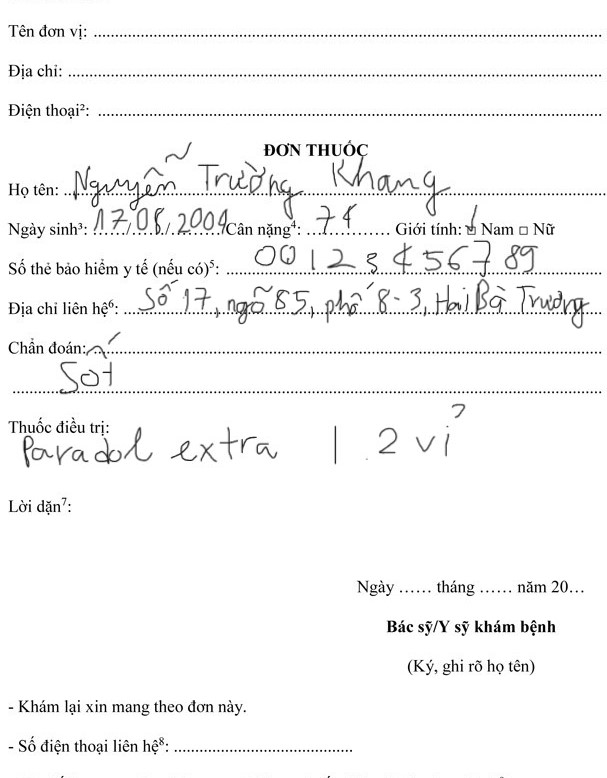 Tên đơn vị: ........................................................................
Địa chỉ: ........................................................................
Điện thoại²: ........................................................................
ĐƠN THUỐC
Họ tên: Nguyễn Trường Khang
Ngày sinh³: 17/08/2004 Cân nặng⁴: 74 Giới tính: ☑ Nam □ Nữ
Số thẻ bảo hiểm y tế (nếu có)⁵: 00123456789
Địa chỉ liên hệ⁶: Số 17, ngõ 85, phố 8-3, Hai Bà Trưng
Chẩn đoán:
Sốt
Thuốc điều trị:
Paradol extra | 2 vỉ
Lời dặn⁷:
Ngày …… tháng …… năm 20…
Bác sỹ/Y sỹ khám bệnh
(Ký, ghi rõ họ tên)
- Khám lại xin mang theo đơn này.
- Số điện thoại liên hệ⁸: ................................................